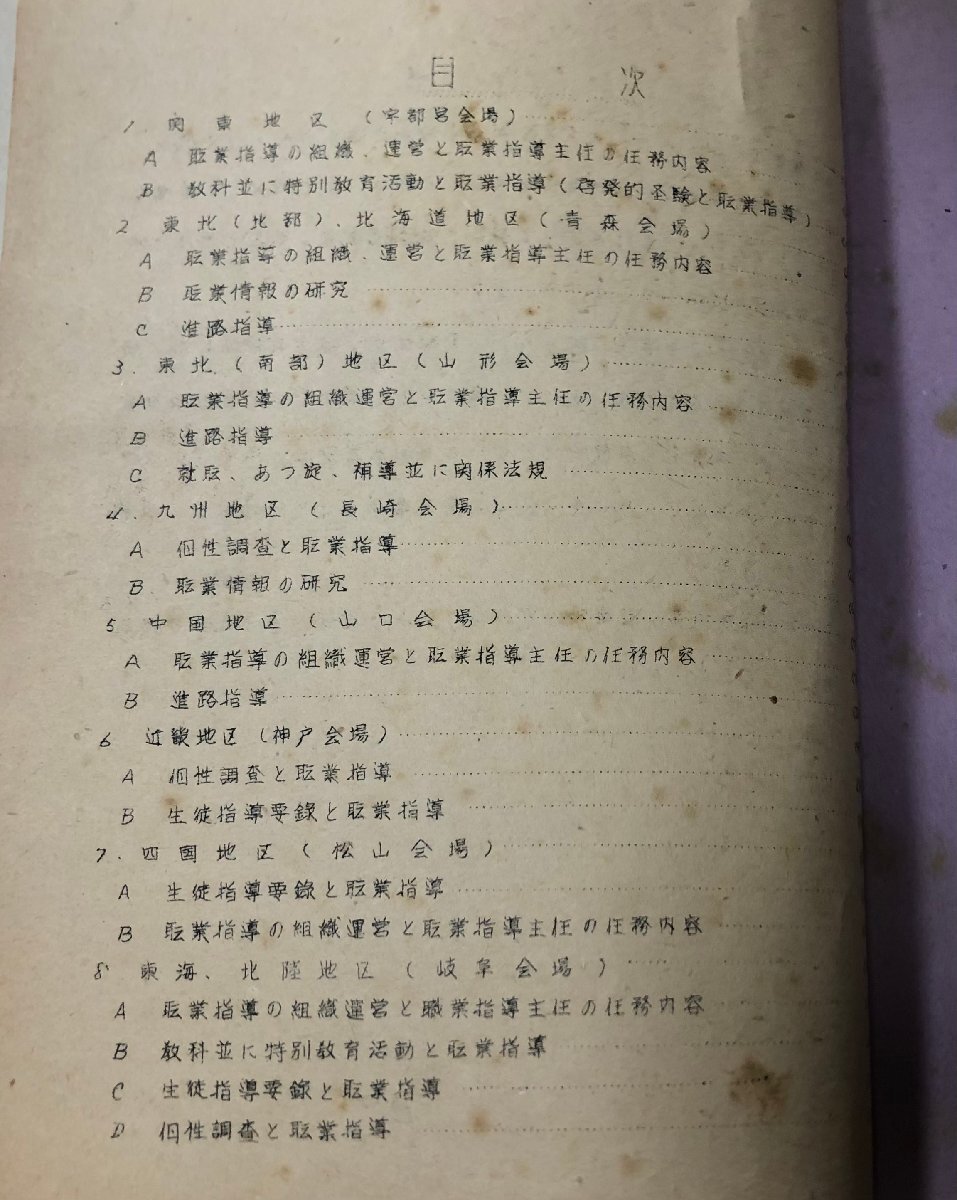 目次
1 関東地区(宇都宮会場)
A 耺業指導の組織、運営と耺業指導主任の任務内容
B 教科並に特別教育活動と耺業指導(啓発的圣験と耺業指導)
2 東北(北部)、北海道地区(青森会場)
A 耺業指導の組織、運営と耺業指導主任の任務内容
B 耺業情報の研究
C 進路指導
3. 東北(南部)地区(山形会場)
A 耺業指導の組織運営と耺業指導主任の任務内容
B 進路指導
C 就耺、あつ旋、補導並に関係法規
4. 九州地区(長崎会場)
A 個性調査と耺業指導
B. 耺業情報の研究
5 中国地区(山口会場)
A 耺業指導の組織運営と耺業指導主任の任務内容
B 進路指導
6 近畿地区(神戸会場)
A 個性調査と耺業指導
B 生徒指導要録と耺業指導
7. 四国地区(松山会場)
A 生徒指導要録と耺業指導
B 耺業指導の組織運営と耺業指導主任の任務内容
8 東海、北陸地区(岐阜会場)
A 耺業指導の組織運営と職業指導主任の任務内容
B 教科並に特別教育活動と耺業指導
C 生徒指導要録と耺業指導
D 個性調査と耺業指導